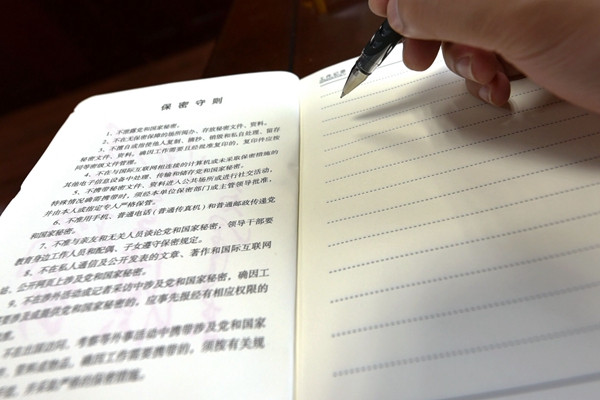 保密守则
1、不泄露党和国家秘密。
2、不在无保密保障的场所阅办、存放秘密文件、资料。
3、不擅自或指使他人复制、摘抄、销毁和私自处理、留存
秘密文件、资料。确因工作需要且经批准复印的，复印件应按
同等密级文件管理。
4、不在与国际互联网相连接的计算机或未采取保密措施的
其他电子信息设备中处理、传输和储存党和国家秘密。
5、不携带秘密文件、资料进入公共场所或进行社交活动，
特殊情况确需携带时，须经本单位保密部门或主管领导批准，
并由本人或指定专人严格保管。
6、不准用手机、普通电话(普通传真机)和普通邮政传递党
和国家秘密。
7、不准与亲友和无关人员谈论党和国家秘密，领导干部要
教育身边工作人员和配偶、子女遵守保密规定。
8、不在私人通信及公开发表的文章、著作和国际互联网
站、公开网页上涉及党和国家秘密。
9、不在涉外活动或记者采访中涉及党和国家秘密，确因工
要涉及或提供党和国家秘密的，应事先报经有相应权限的
不在出国访问、考察等外事活动中携带涉及党和国家
资料或物品，确因工作需要携带的，须按有关规
并采取严格的保密措施。